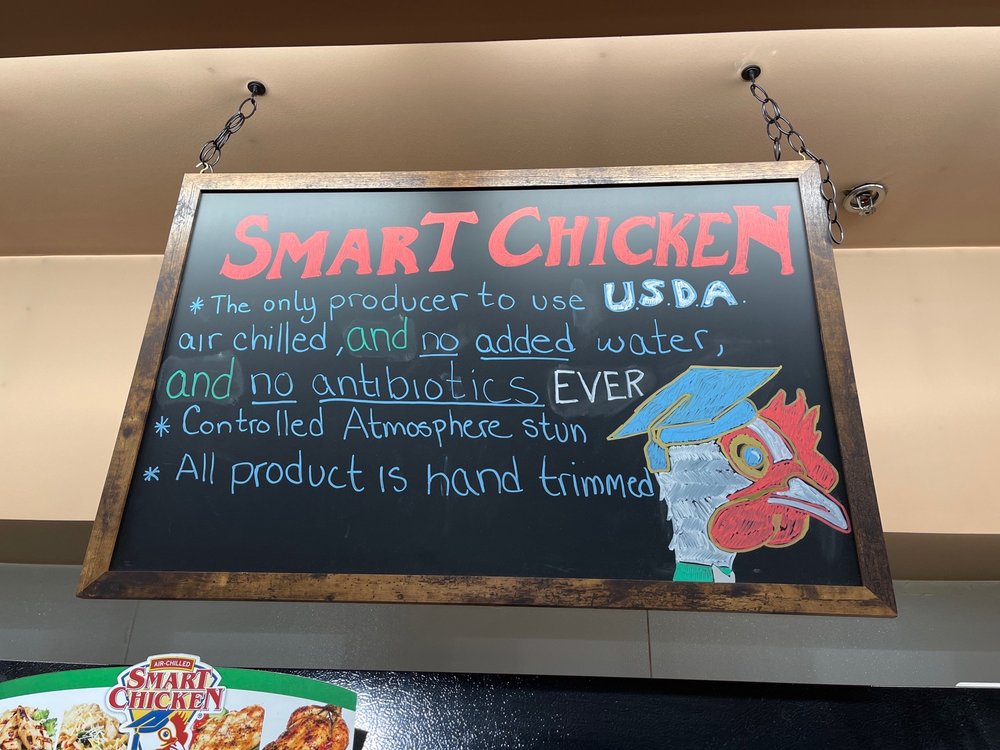 SMART CHICKEN
* The only producer to use U.S.D.A.
air chilled, and no added water,
and no antibiotics EVER
* Controlled Atmosphere stun
* All product is hand trimmed
AIR-CHILLED
SMART
CHICKEN
®